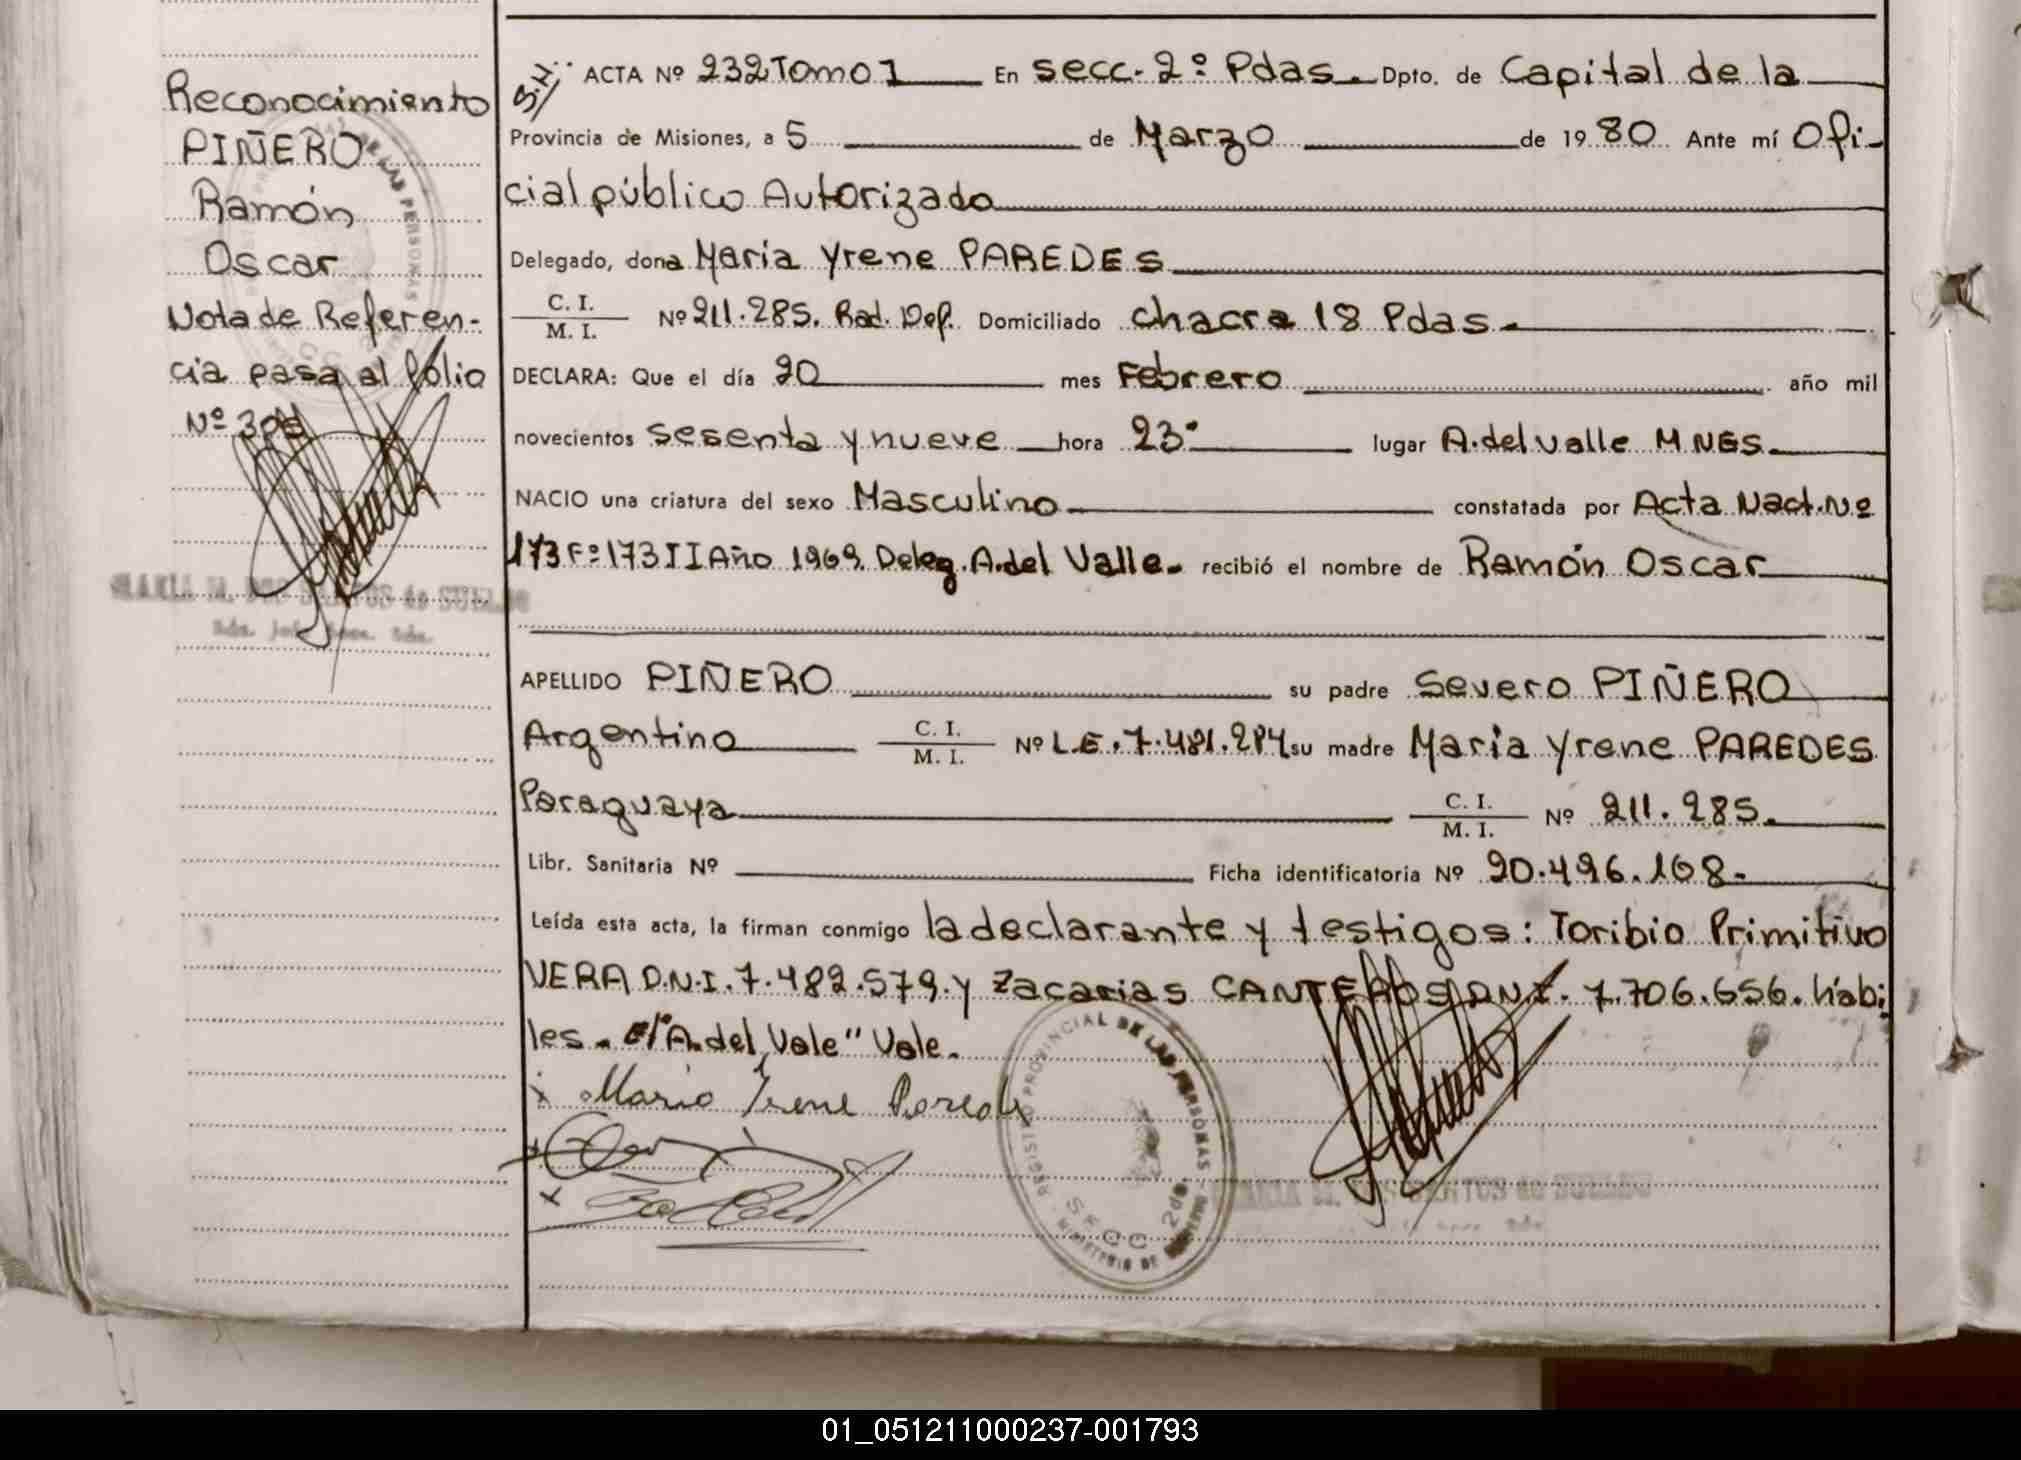 Reconocimiento
PIÑERO
Ramón
Oscar
Nota de Referen-
cia pasa al folio
Nº
S.N. ACTA Nº 232 Tomo 1 En secc. 2º Pdas. Dpto. de Capital de la
Provincia de Misiones, a 5 de Marzo de 1980 Ante mí Ofi-
cial público Autorizado
Delegado, dona Maria Yrene PAREDES
C. I.
M. I. Nº 211.285. Rad. Def. Domiciliado chacra 18 Pdas.
DECLARA: Que el día 20 mes Febrero año mil
novecientos sesenta y nueve hora 23º lugar A. del valle MNES.
NACIO una criatura del sexo Masculino constatada por Acta Nact. Nº
173 Fº 173 II Año 1969. Deleg. A. del Valle. recibió el nombre de Ramón Oscar
APELLIDO PIÑERO su padre Severo PIÑERO
Argentino C. I.
M. I. Nº L.E. 7.481.284 su madre Maria Yrene PAREDES
Paraguaya C. I.
M. I. Nº 211.285.
Libr. Sanitaria Nº Ficha identificatoria Nº 20.496.168.
Leída esta acta, la firman conmigo la declarante y testigos: Toribio Primitivo
VERA D.N.I. 7.482.579. y Zacarias CANTEROS D.N.I. 7.706.656. hábi
les. e/"A. del Vale" Vale.
Maria Irene Paredes
REGISTRO PROVINCIAL DE LAS PERSONAS
MARIA M. DOS SANTOS de SUELDO
01_051211000237-001793